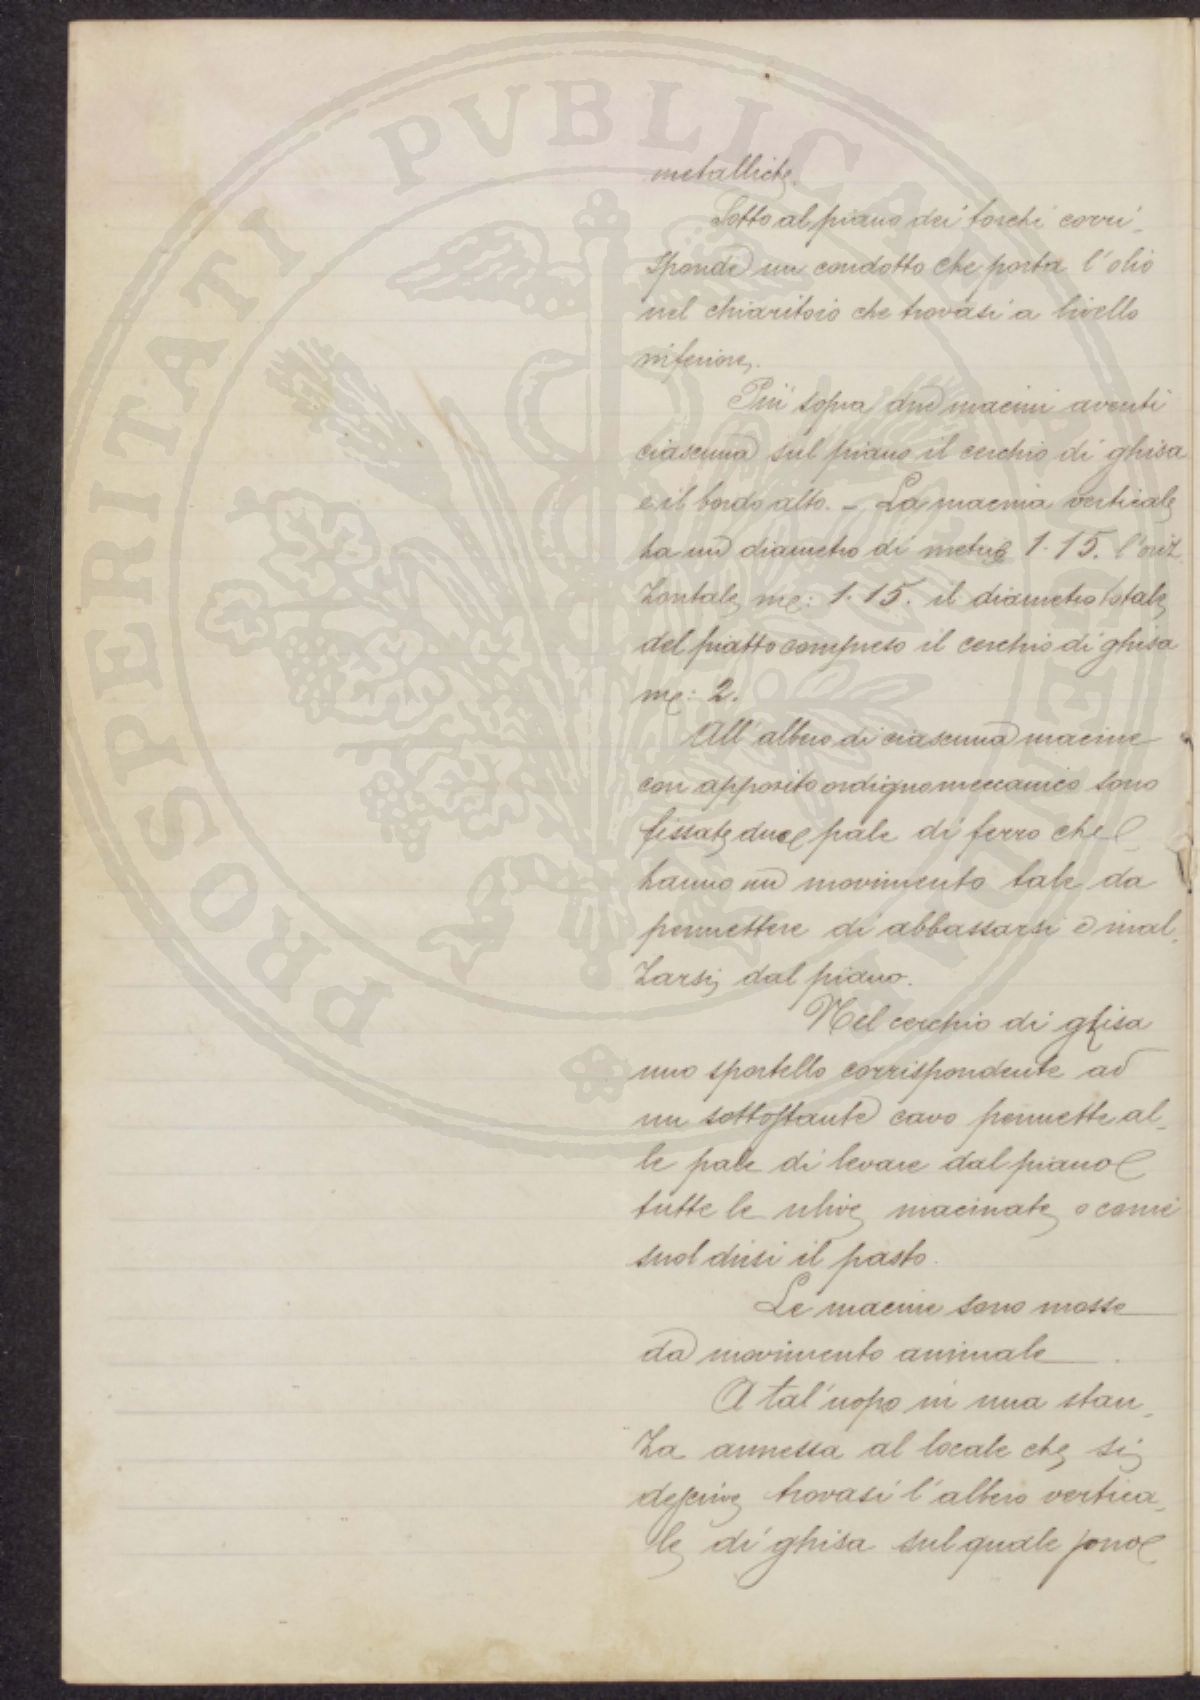 PROSPERITATI PVBLICAE
metalliche.
Sotto al piano dei torchi corri-
sponde un condotto che porta l'olio
nel chiaritoio che trovasi a livello
inferiore.
Più sopra due macini aventi
ciascuna sul piano il cerchio di ghisa
e il bordo alto. - La macina verticale
ha un diametro di metri 1.15. l'oriz
zontale me: 1.15. il diametro totale
del piatto compreso il cerchio di ghisa
me: 2.
All'albero di ciascuna macine
con apposito ordigno meccanico sono
fissate due pale di ferro che
hanno un movimento tale da
permettere di abbassarsi e inal-
zarsi dal piano.
Nel cerchio di ghisa
uno sportello corrispondente ad
un sottostante cavo permette al-
le pale di levare dal piano
tutte le ulive macinate o come
suol dirsi il pasto.
Le macine sono mosse
da movimento animale.
A tal'uopo in una stan-
za annessa al locale che si
descrive trovasi l'albero vertica-
le di ghisa sul quale sono